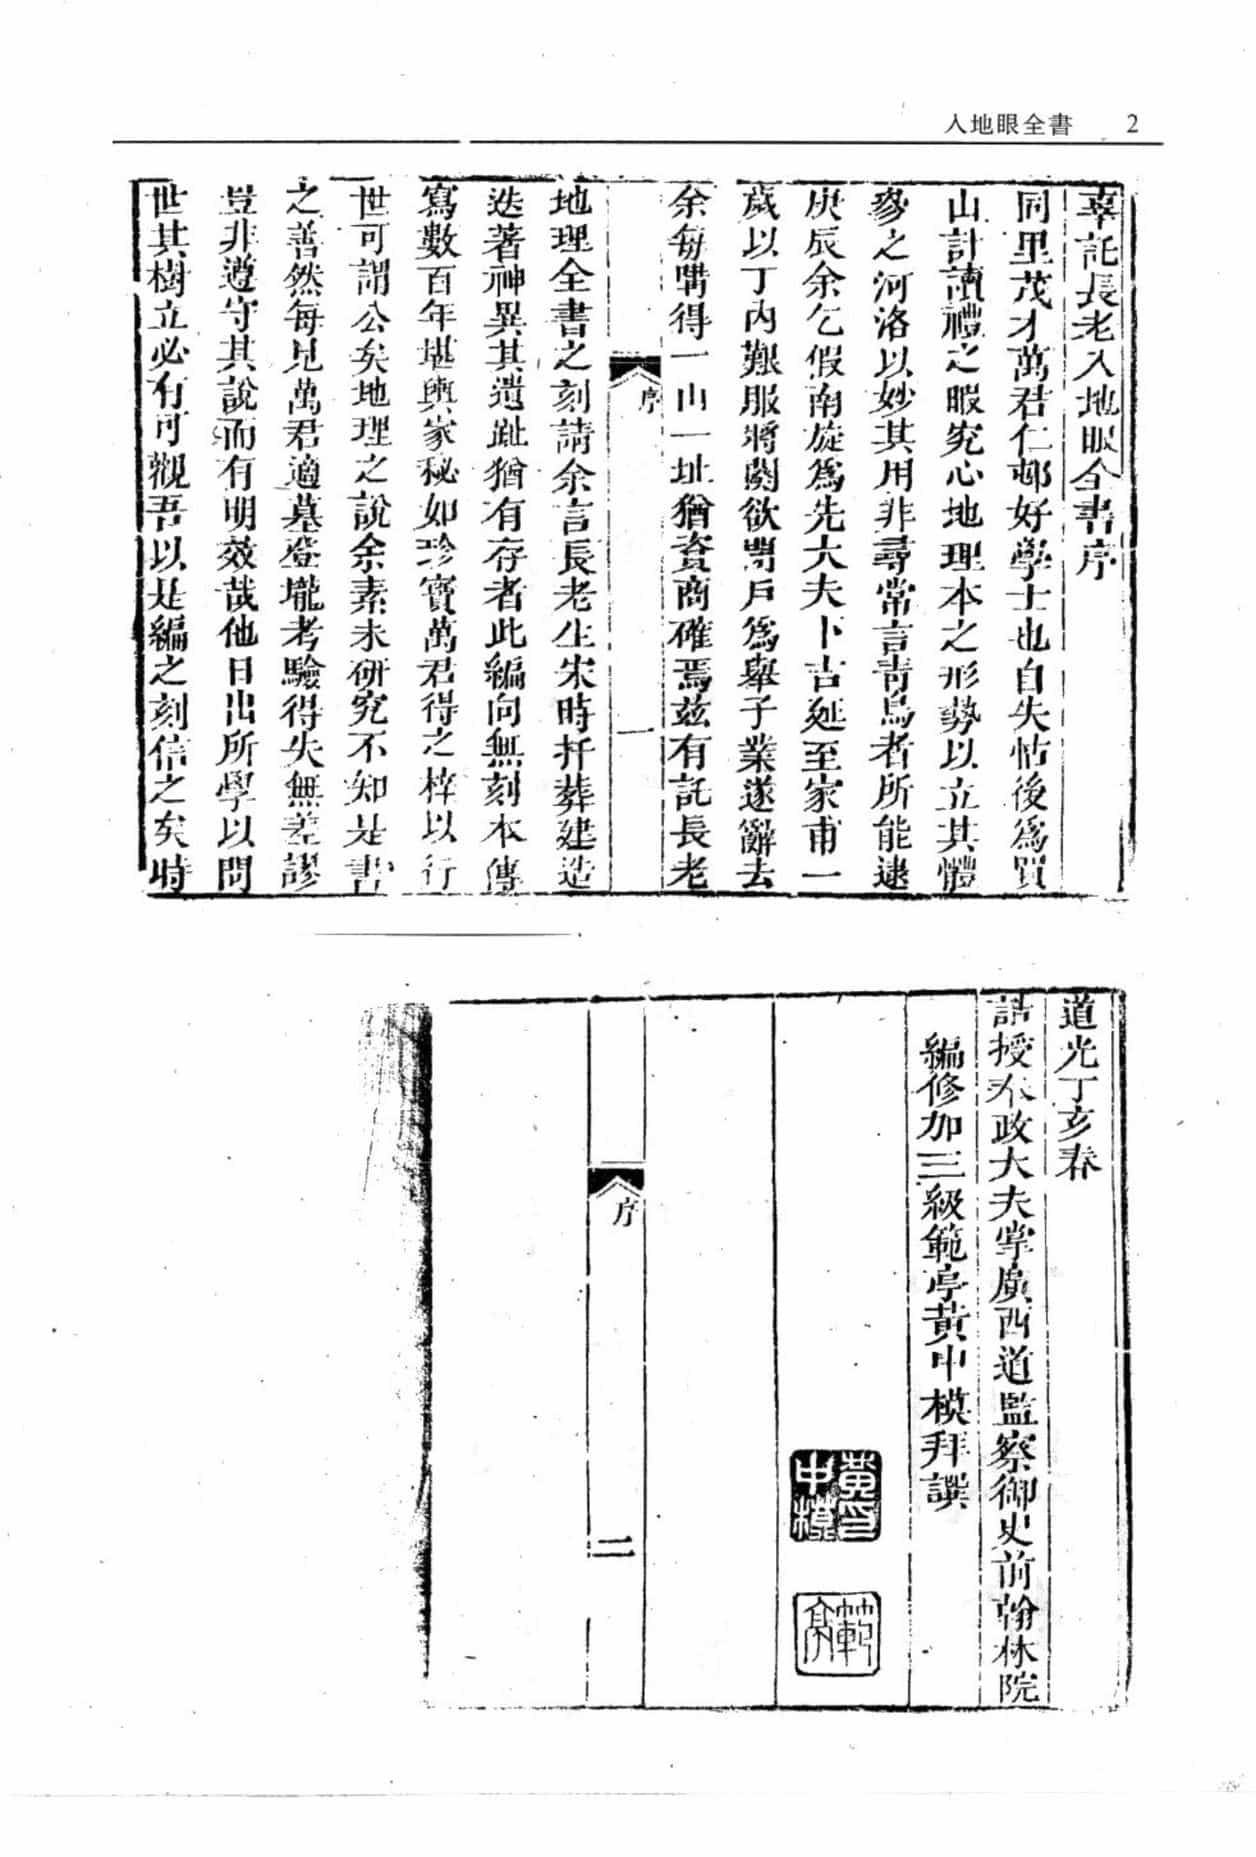 入地眼全書 2
辜託長老入地眼全書序
同里茂才萬君仁邨好學士也自失怙後為買
山計讀禮之暇究心地理本之形勢以立其體
參之河洛以妙其用非尋常言青烏者所能逮
庚辰余乞假南旋為先大夫卜吉延至家甫一
歲以丁內艱服將闋欲閉戶為舉子業遂辭去
余每購得一山一址猶資商確焉茲有託長老
序
一
地理全書之刻請余言長老生宋時扦葬建造
迭著神異其遺趾猶有存者此編向無刻本傳
寫數百年堪輿家秘如珍寶萬君得之梓以行
世可謂公矣地理之說余素未研究不知是書
之善然每見萬君適墓登壠考驗得失無差謬
豈非遵守其說而有明效哉他日出所學以問
世其樹立必有可觀吾以是編之刻信之矣時
道光丁亥春
誥授奉政大夫掌廣西道監察御史前翰林院
編修加三級範亭黃中模拜譔
黃印中模
範亭
序
二